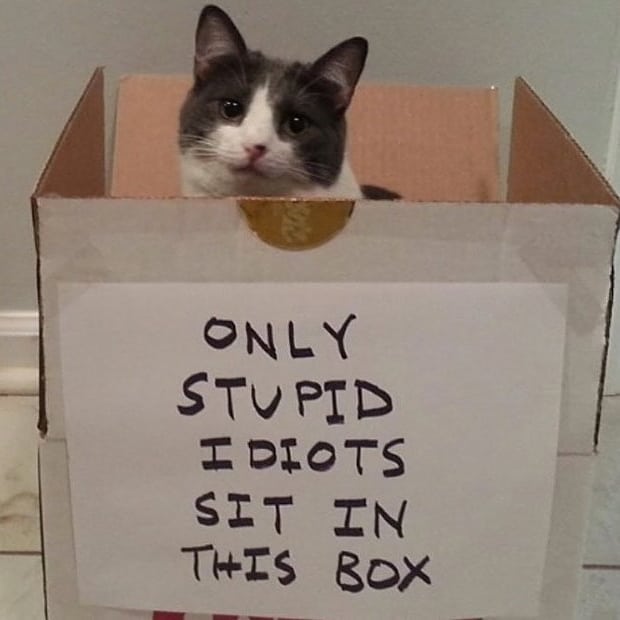 ONLY
STUPID
IDIOTS
SIT IN
THIS BOX